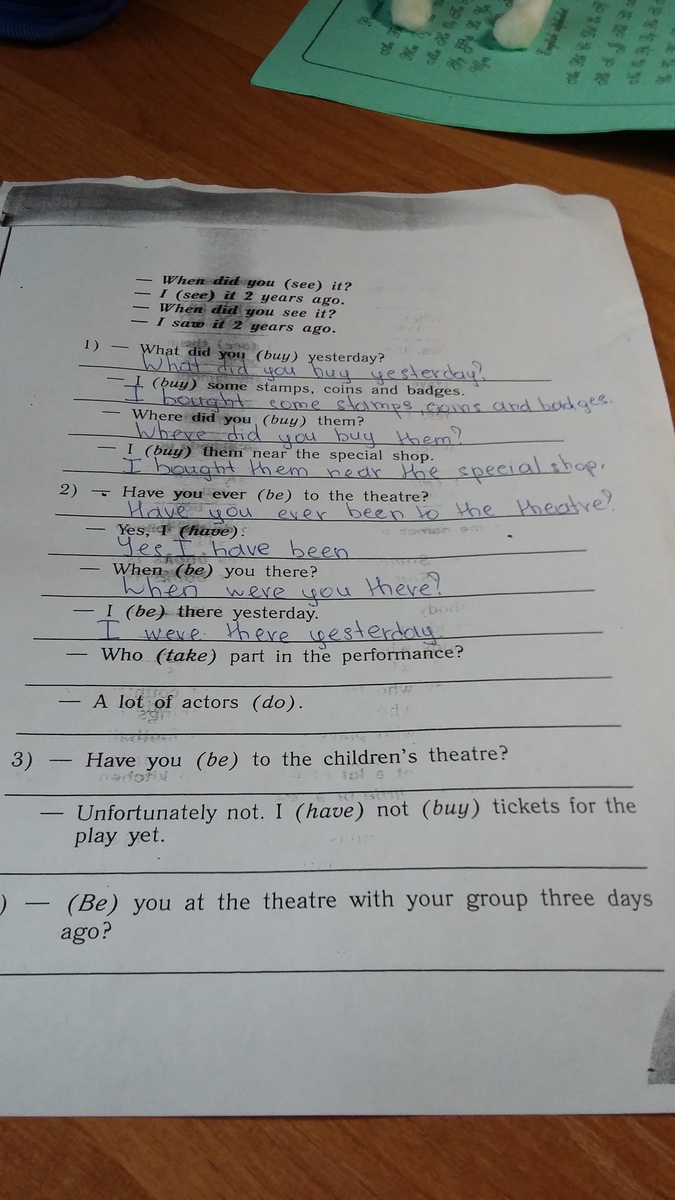 — When did you (see) it?
— I (see) it 2 years ago.
— When did you see it?
— I saw it 2 years ago.
1) — What did you (buy) yesterday?
What did you buy yesterday?
— I (buy) some stamps, coins and badges.
I bought some stamps, coins and badges.
— Where did you (buy) them?
Where did you buy them?
— I (buy) them near the special shop.
I bought them near the special shop.
2) — Have you ever (be) to the theatre?
Have you ever been to the theatre?
— Yes, I (have).
Yes, I have been
— When (be) you there?
When were you there?
— I (be) there yesterday.
I were there yesterday.
— Who (take) part in the performance?
— A lot of actors (do).
3) — Have you (be) to the children's theatre?
— Unfortunately not. I (have) not (buy) tickets for the
play yet.
) — (Be) you at the theatre with your group three days
ago?